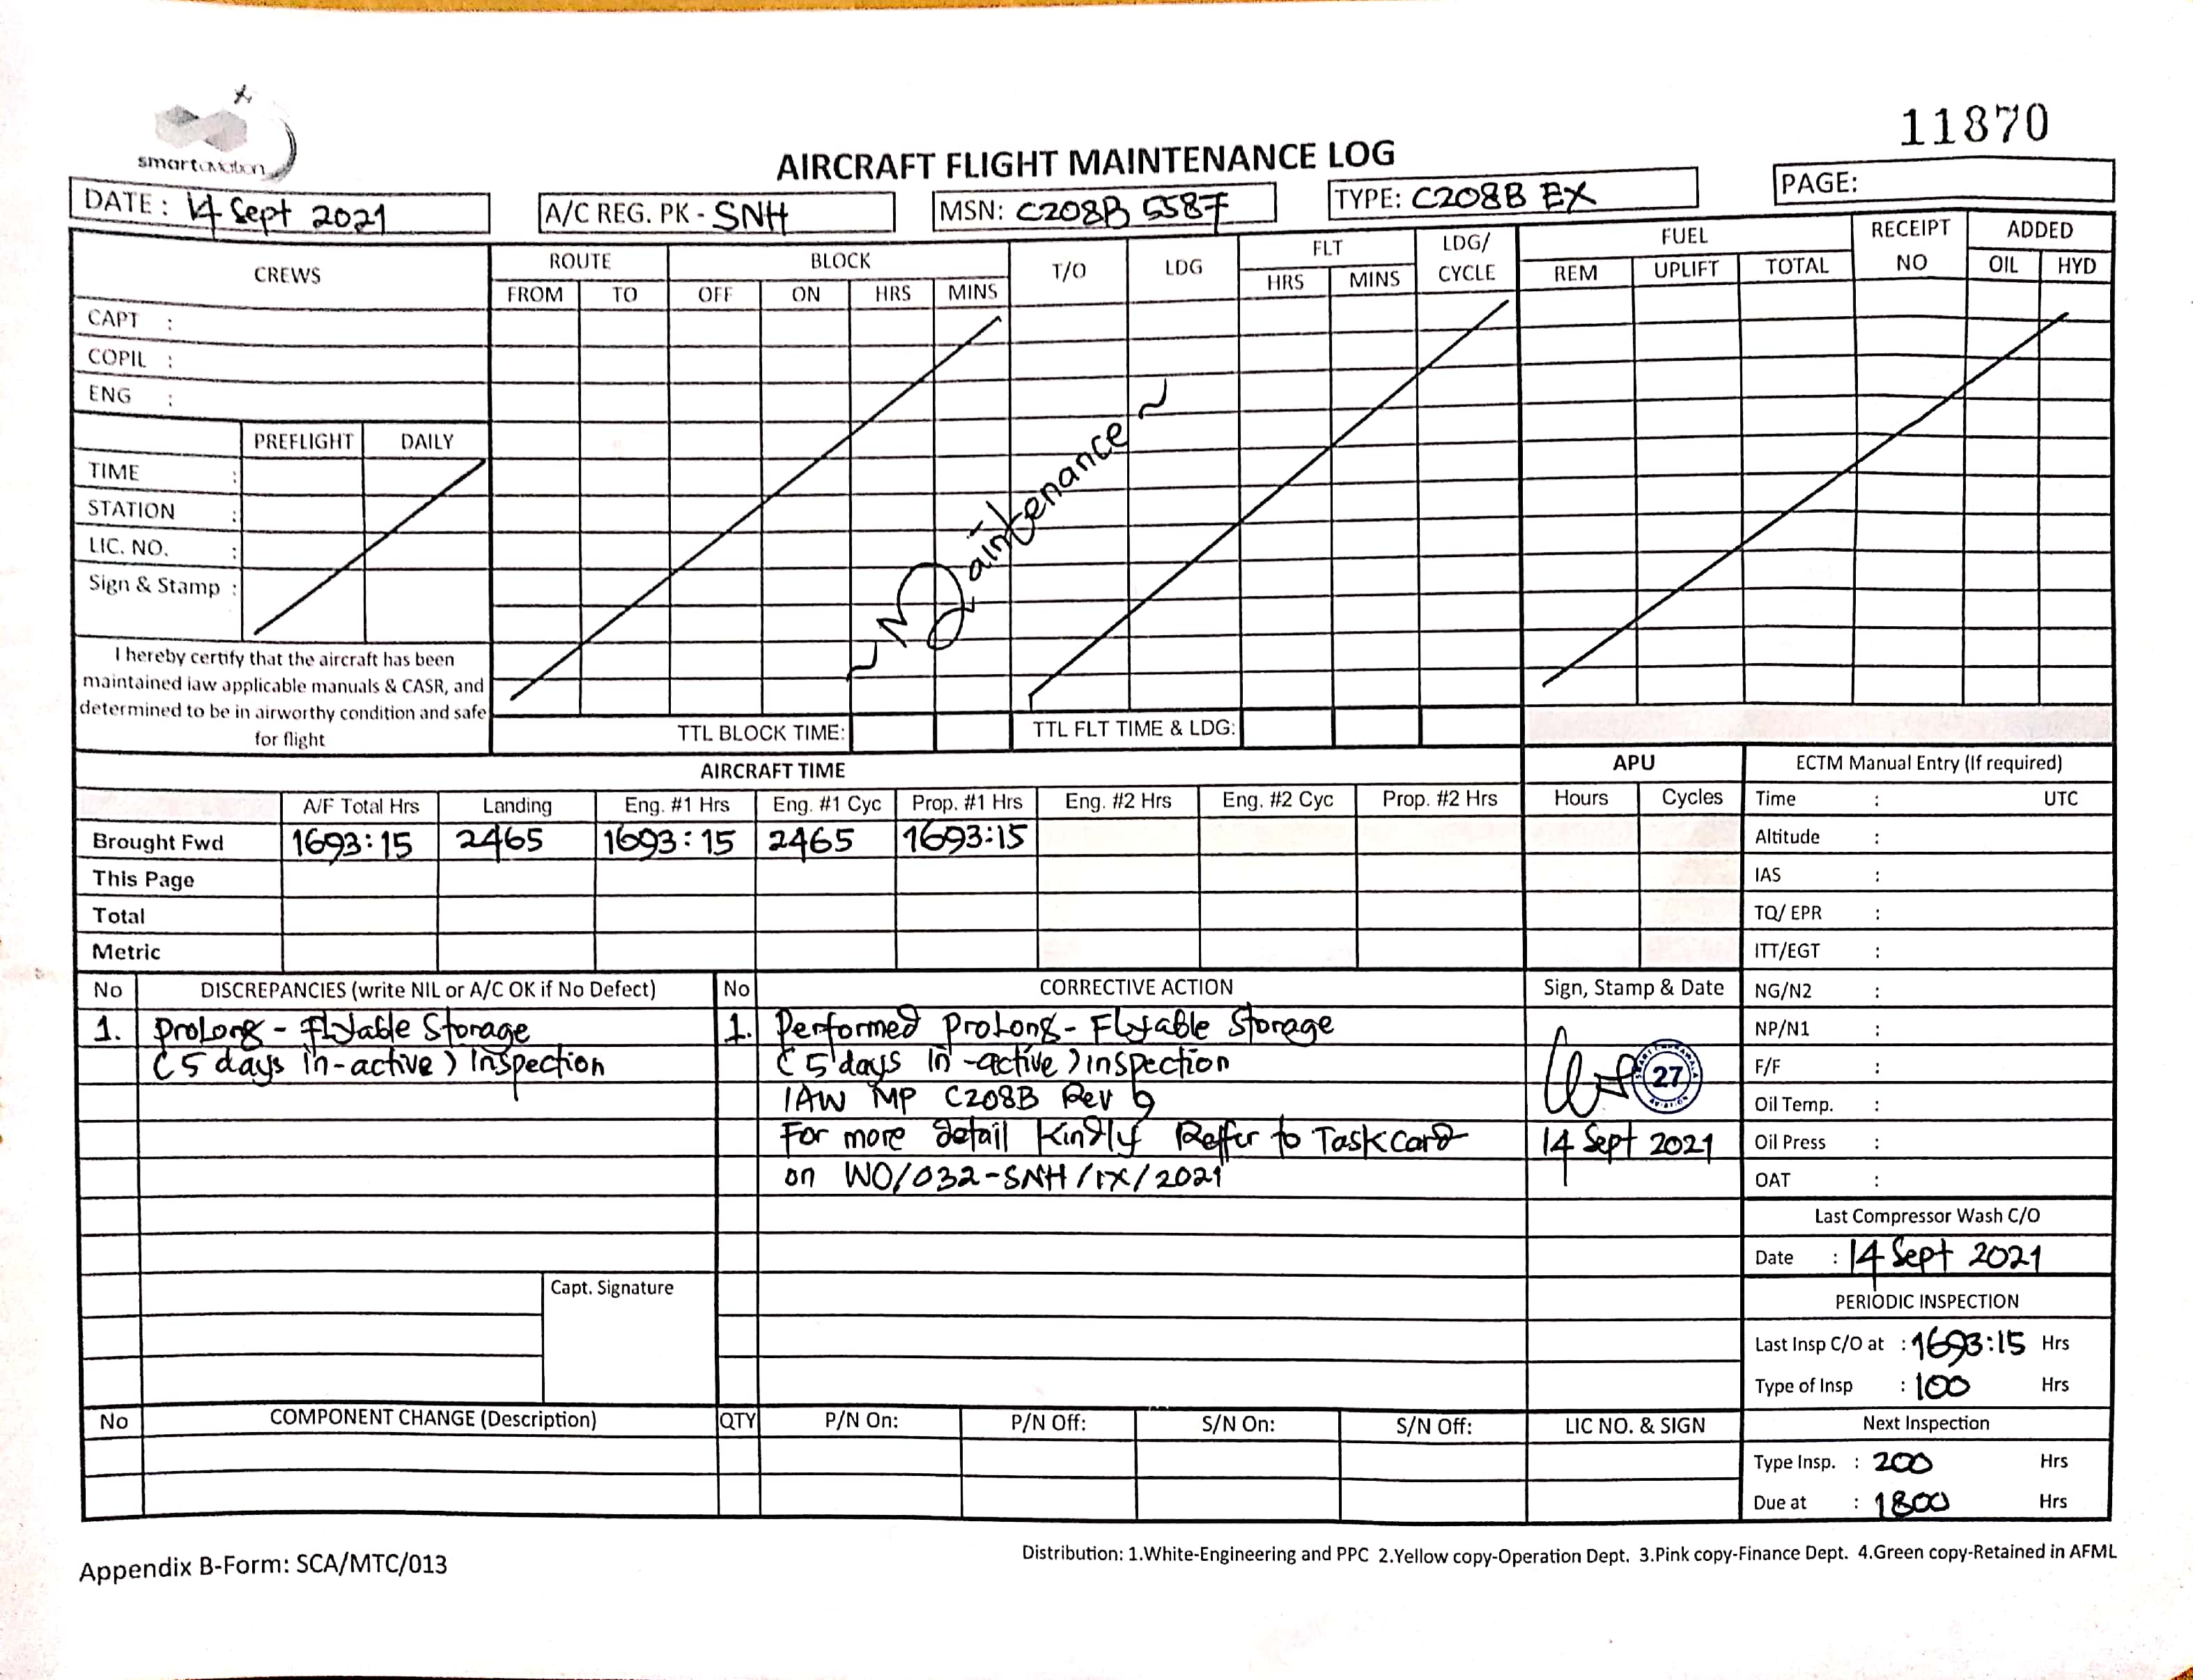 smartaviation
11870
AIRCRAFT FLIGHT MAINTENANCE LOG
DATE : 14 Sept 2021
A/C REG. PK - SNH
MSN: C208B 5587
TYPE: C208B EX
PAGE:
CREWS
ROUTE
BLOCK
T/O
LDG
FLT
LDG/ CYCLE
FUEL
RECEIPT NO
ADDED
FROM TO OFF ON HRS MINS
HRS MINS
REM UPLIFT TOTAL
OIL HYD
CAPT :
COPIL :
ENG :
PREFLIGHT DAILY
TIME :
STATION :
LIC. NO. :
Sign & Stamp :
~ Maintenance ~
I hereby certify that the aircraft has been
maintained iaw applicable manuals & CASR, and
determined to be in airworthy condition and safe
for flight
TTL BLOCK TIME:
TTL FLT TIME & LDG:
AIRCRAFT TIME
APU
ECTM Manual Entry (If required)
A/F Total Hrs Landing Eng. #1 Hrs Eng. #1 Cyc Prop. #1 Hrs Eng. #2 Hrs Eng. #2 Cyc Prop. #2 Hrs Hours Cycles
Time : UTC
Brought Fwd 1693:15 2465 1693:15 2465 1693:15
Altitude :
This Page
IAS :
Total
TQ/ EPR :
Metric
ITT/EGT :
No DISCREPANCIES (write NIL or A/C OK if No Defect)
No CORRECTIVE ACTION
Sign, Stamp & Date
NG/N2 :
1. Prolong - Flyable Storage
(5 days in-active) Inspection
1. Performed Prolong - Flyable Storage
(5 days in-active) inspection
IAW MP C208B Rev 6
For more detail Kindly Reffer to Taskcard
on WO/032-SNH/IX/2021
27
14 Sept 2021
NP/N1 :
F/F :
Oil Temp. :
Oil Press :
OAT :
Last Compressor Wash C/O
Date : 14 Sept 2021
Capt. Signature
PERIODIC INSPECTION
Last Insp C/O at : 1693:15 Hrs
Type of Insp : 100 Hrs
No COMPONENT CHANGE (Description) QTY P/N On: P/N Off: S/N On: S/N Off: LIC NO. & SIGN
Next Inspection
Type Insp. : 200 Hrs
Due at : 1800 Hrs
Appendix B-Form: SCA/MTC/013
Distribution: 1.White-Engineering and PPC 2.Yellow copy-Operation Dept. 3.Pink copy-Finance Dept. 4.Green copy-Retained in AFML